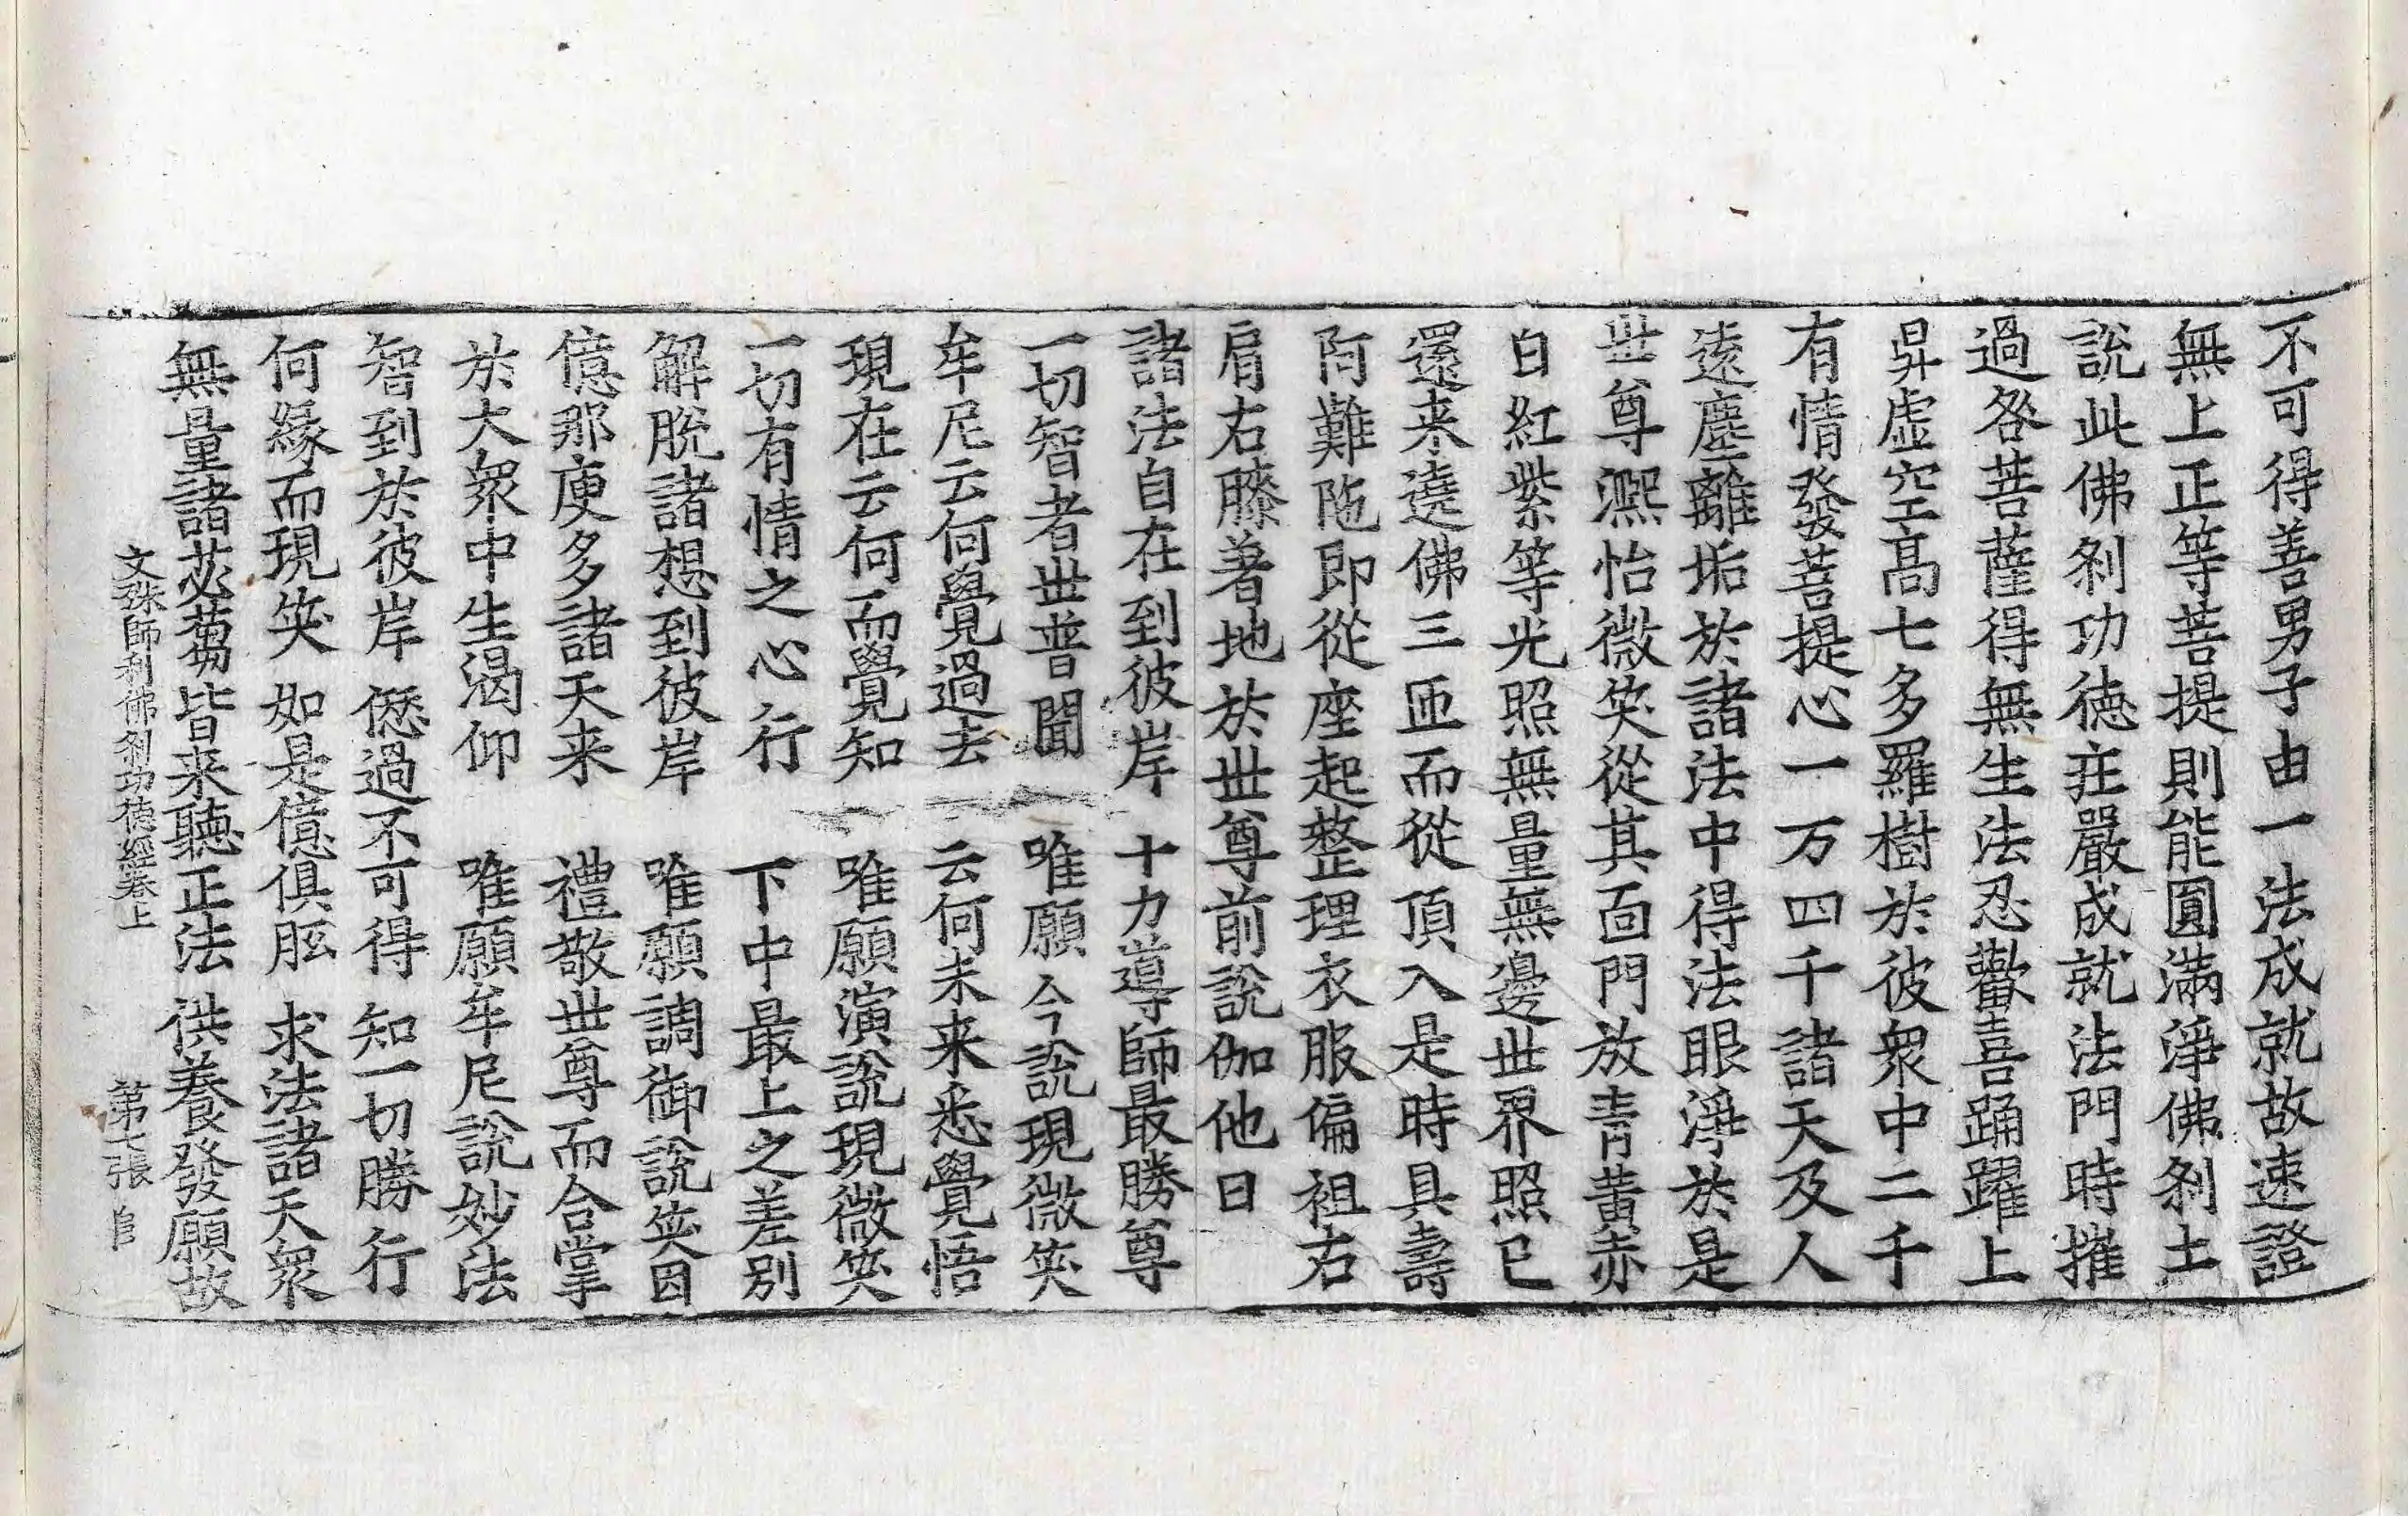 不可得善男子由一法成就故速證
無上正等菩提則能圓滿淨佛刹土
說此佛刹功德莊嚴成就法門時摧
過咎菩薩得無生法忍歡喜踊躍上
昇虛空高七多羅樹於彼衆中二千
有情發菩提心一万四千諸天及人
遠塵離垢於諸法中得法眼淨於是
世尊凞怡微笑從其面門放青黃赤
白紅紫等光照無量無邊世界照已
還来遶佛三匝而從頂入是時具壽
阿難陁即從座起整理衣服偏袒右
肩右膝著地於世尊前說伽他曰
諸法自在到彼岸 十力導師最勝尊
一切智者世普聞 唯願今說現微笑
牟尼云何覺過去 云何未来悉覺悟
現在云何而覺知 唯願演說現微笑
一切有情之心行 下中最上之差別
解脫諸想到彼岸 唯願調御說笑因
億那庾多諸天来 禮敬世尊而合掌
於大衆中生渴仰 唯願牟尼說妙法
智到於彼岸 僁過不可得 知一切勝行
何緣而現笑 如是億俱胝 求法諸天衆
無量諸苾芻皆来聽正法 供養發願故
文殊師利佛刹功德經卷上 第七張 官